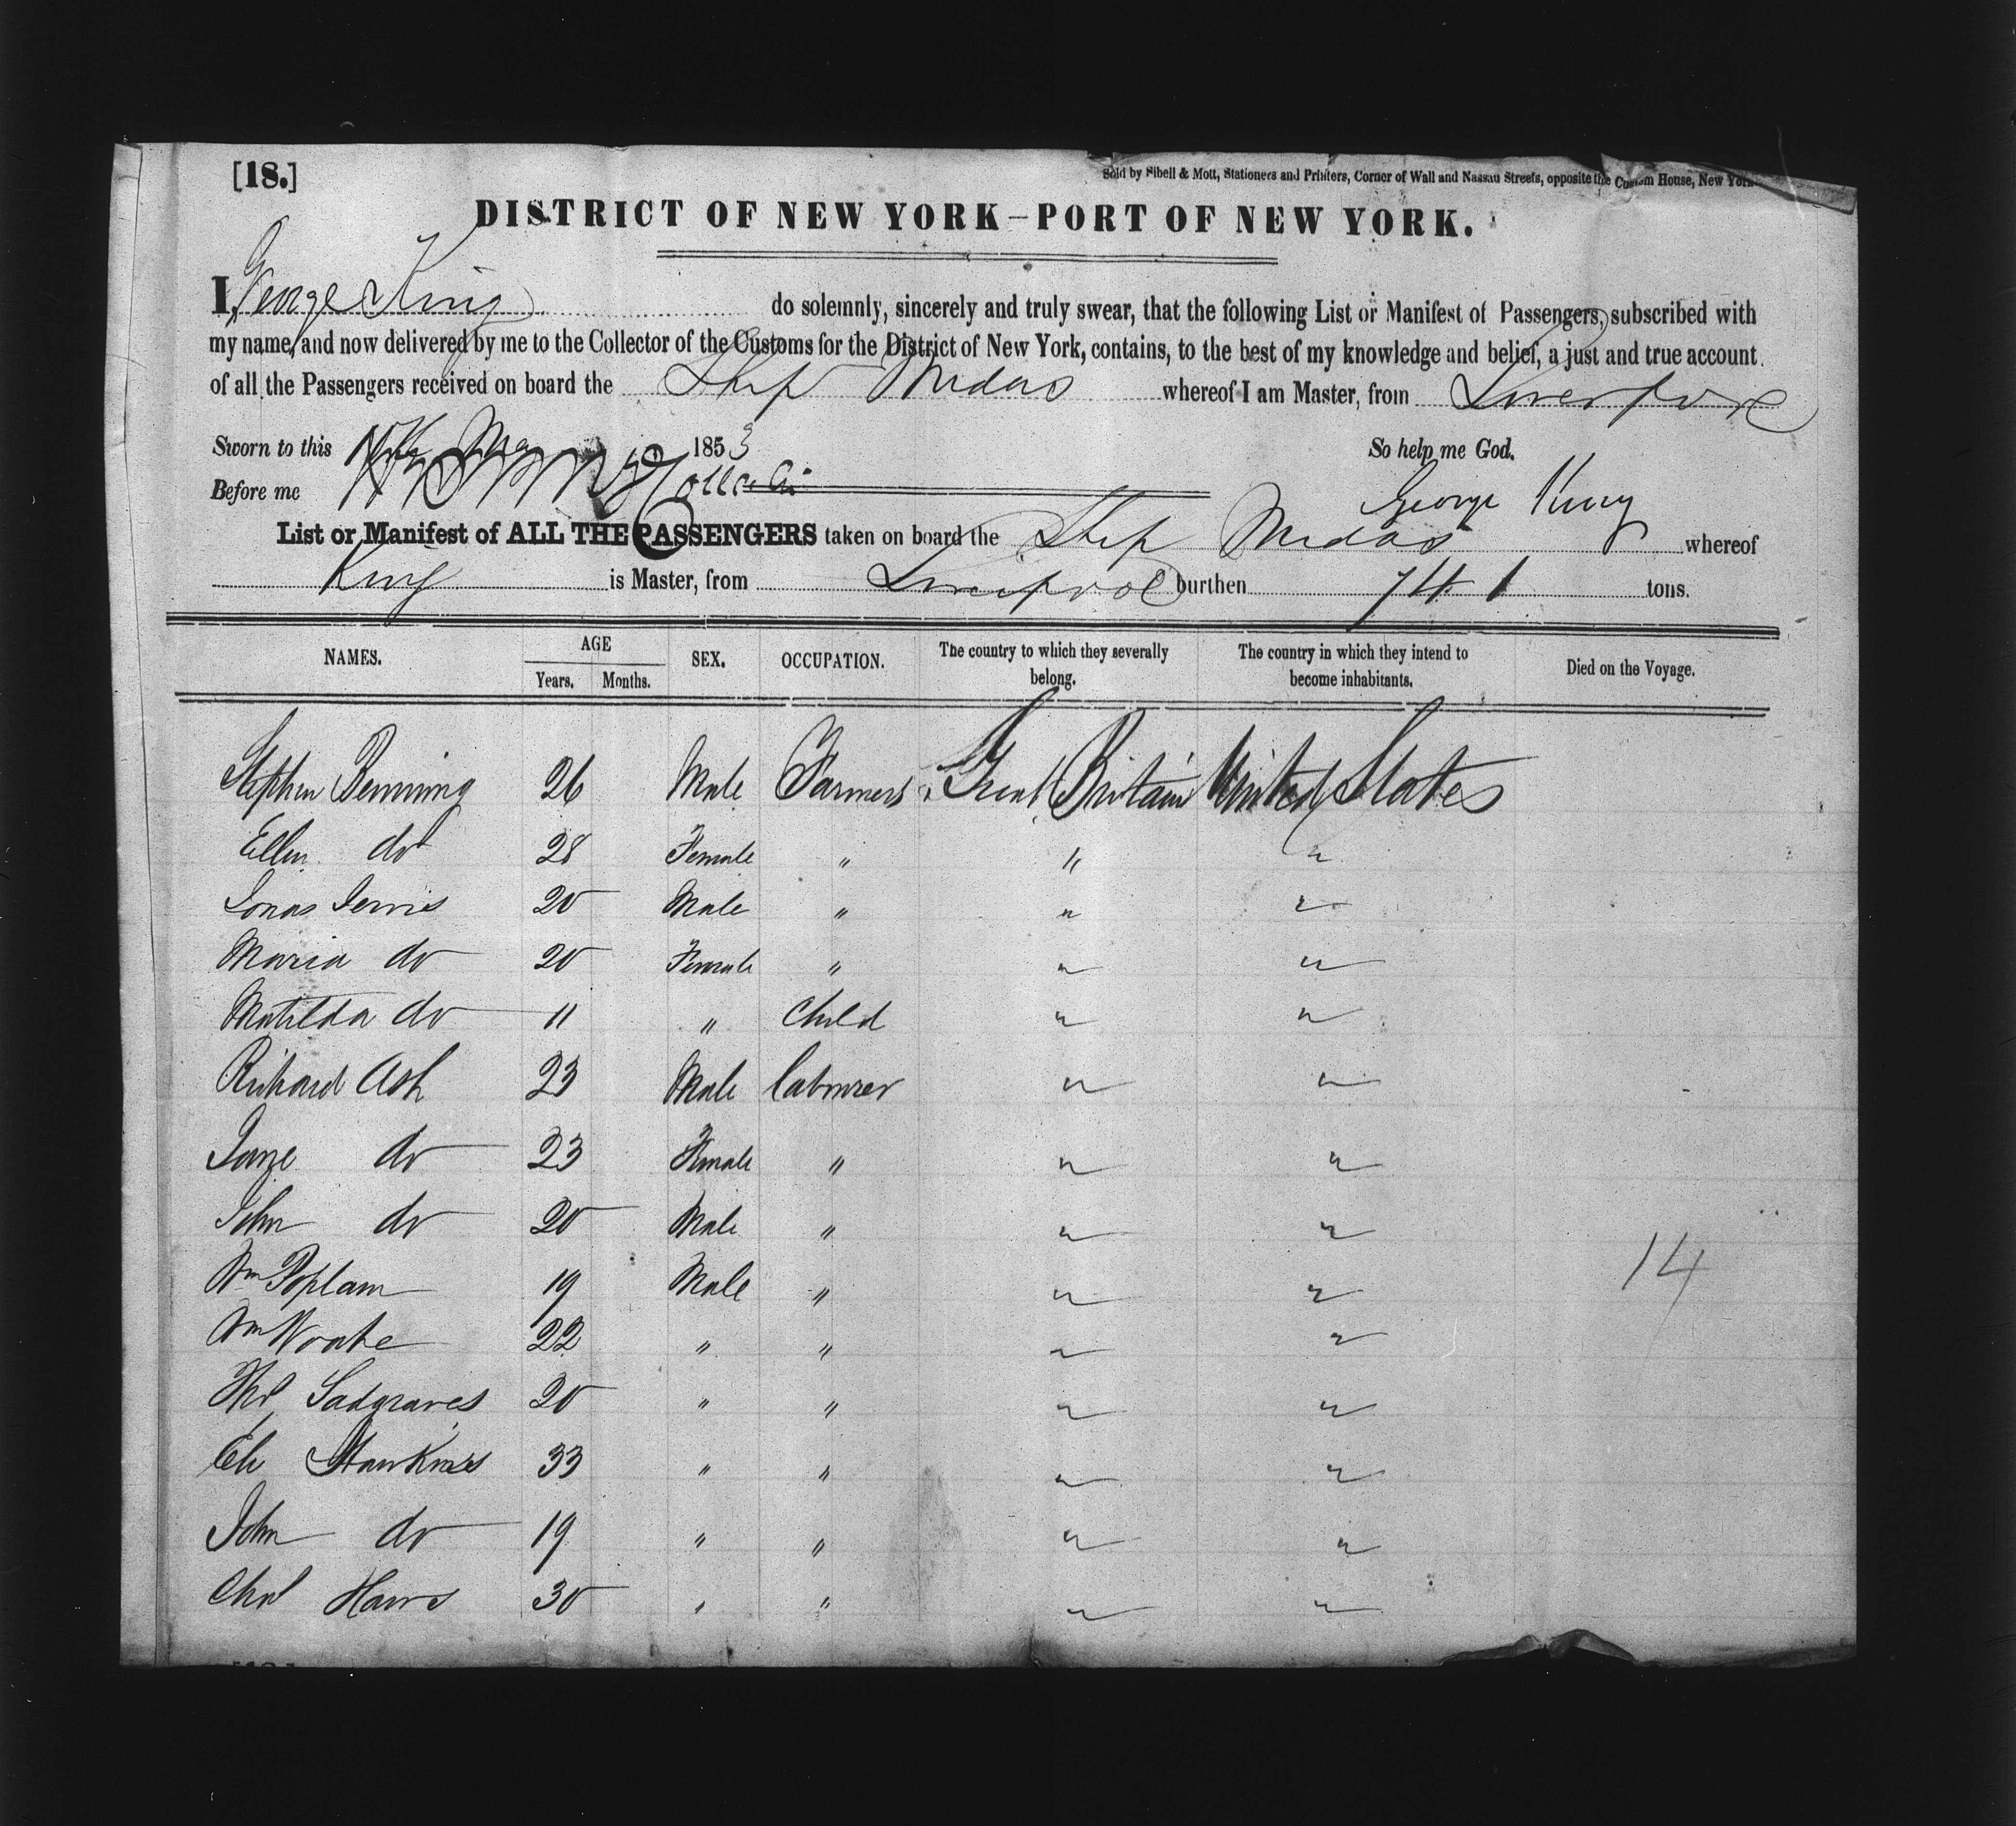 [18.]
Sold by Sibell & Mott, Stationers and Printers, Corner of Wall and Nassau Streets, opposite the Custom House, New York
DISTRICT OF NEW YORK—PORT OF NEW YORK.
I, George King do solemnly, sincerely and truly swear, that the following List or Manifest of Passengers, subscribed with
my name, and now delivered by me to the Collector of the Customs for the District of New York, contains, to the best of my knowledge and belief, a just and true account
of all the Passengers received on board the Ship Midas whereof I am Master, from Liverpool
Sworn to this 1853 So help me God.
Before me George King
List or Manifest of ALL THE PASSENGERS taken on board the Ship Midas whereof
King is Master, from Liverpool burthen 741 tons.
NAMES. AGE Years. Months. SEX. OCCUPATION. The country to which they severally belong. The country in which they intend to become inhabitants. Died on the Voyage.
Stephen Benning 26 Male Farmers Great Britain United States
Ellen do 28 Female " " "
Jonas Jervis 20 Male " " "
Maria do 20 Female " " "
Matilda do 11 " Child " "
Richard Ash 23 Male Labourer " "
Jane do 23 Female " " "
John do 20 Male " " "
Wm Poplam 19 Male " " "
Wm 22 " " " "
Sadgraves 20 " " " "
Eli Hawkins 33 " " " "
John do 19 " " " "
Haws 30 " " " "
14